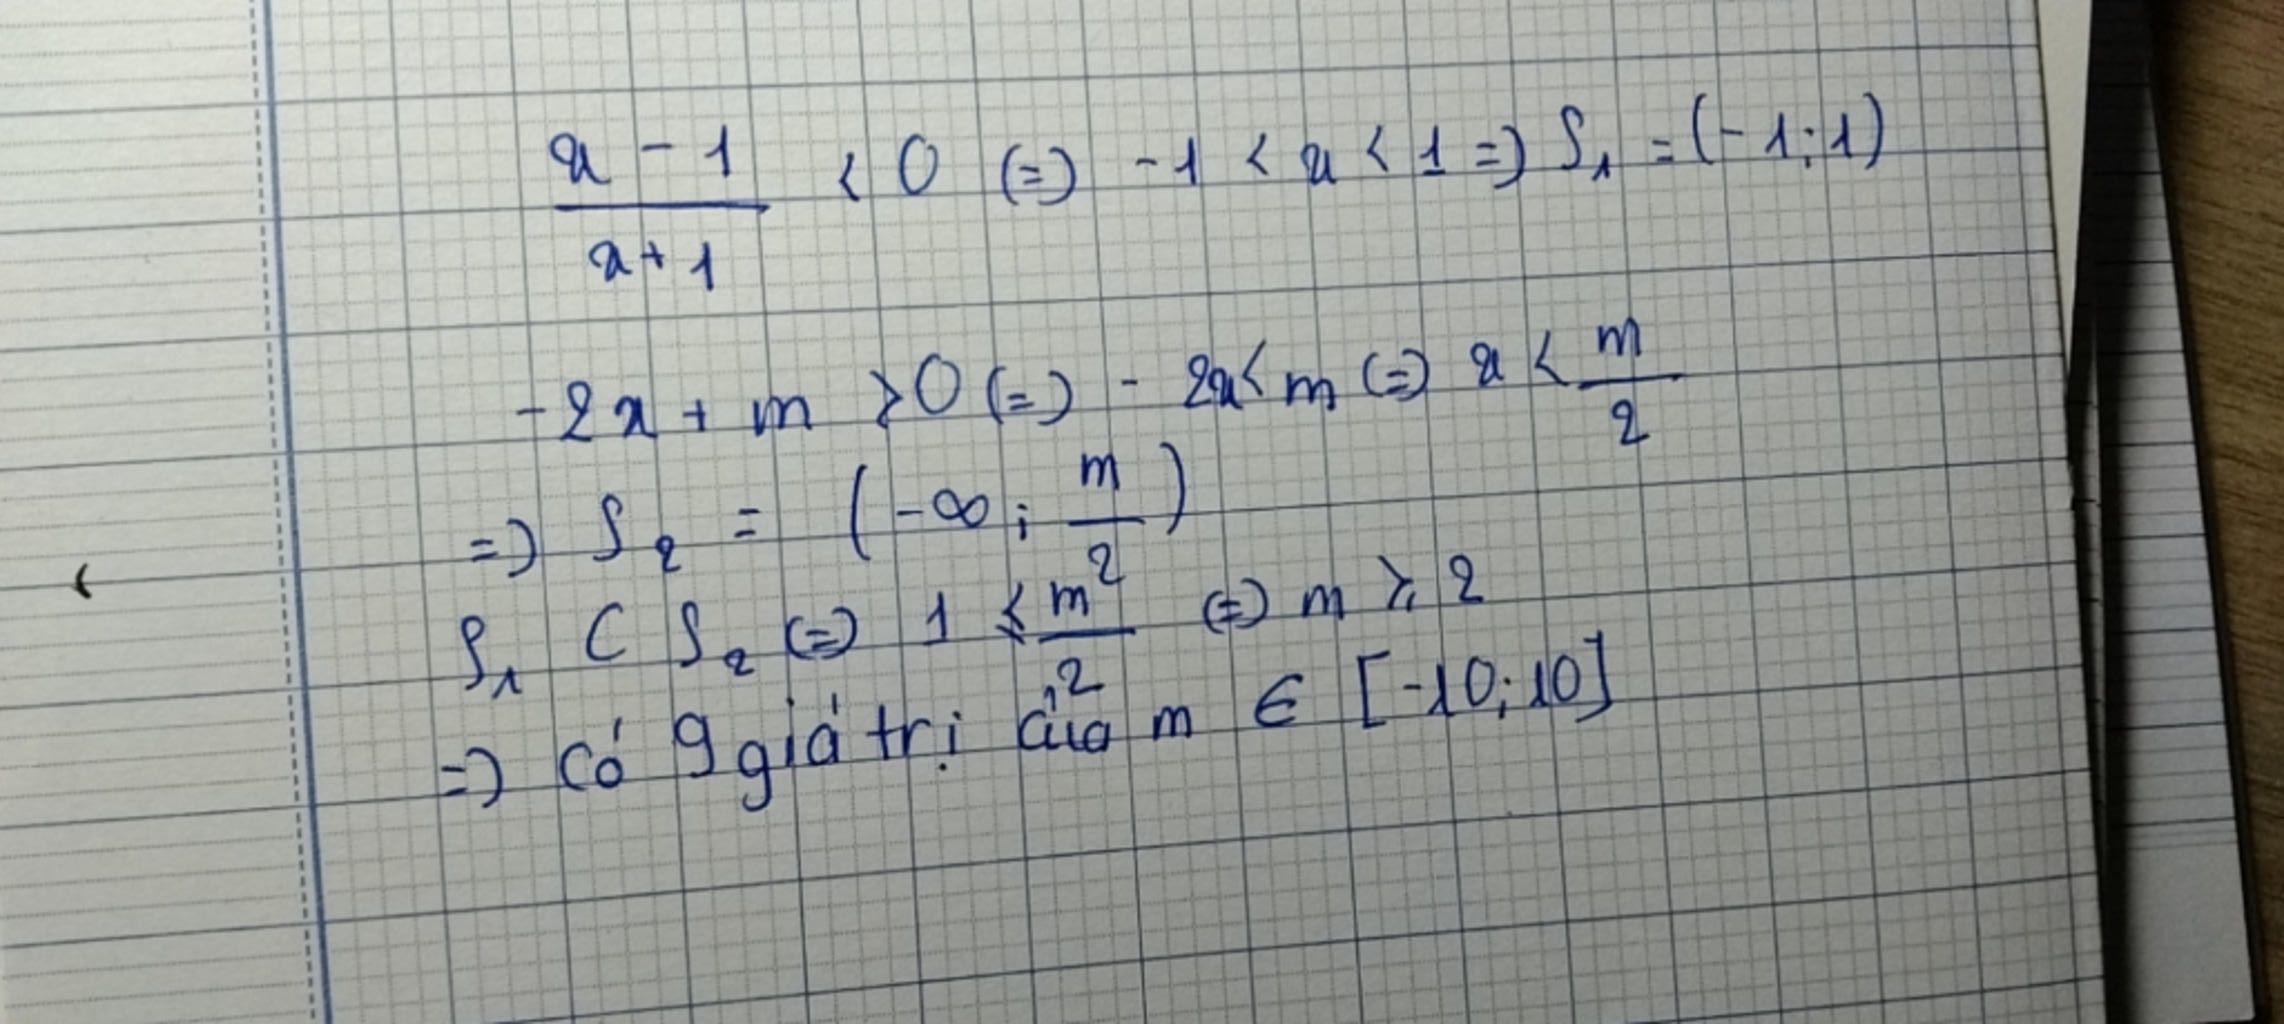 x - 1 / x + 1 < 0 (=) -1 < x < 1 =) S₁ = (-1;1)
-2x + m > 0 (=) - 2x < m (=) x < m/2
=) S₂ = (-∞; m/2)
S₁ ⊂ S₂ (=) 1 ≤ m/2 (=) m ≥ 2
=) Có 9 giá trị của m ∈ [-10;10]